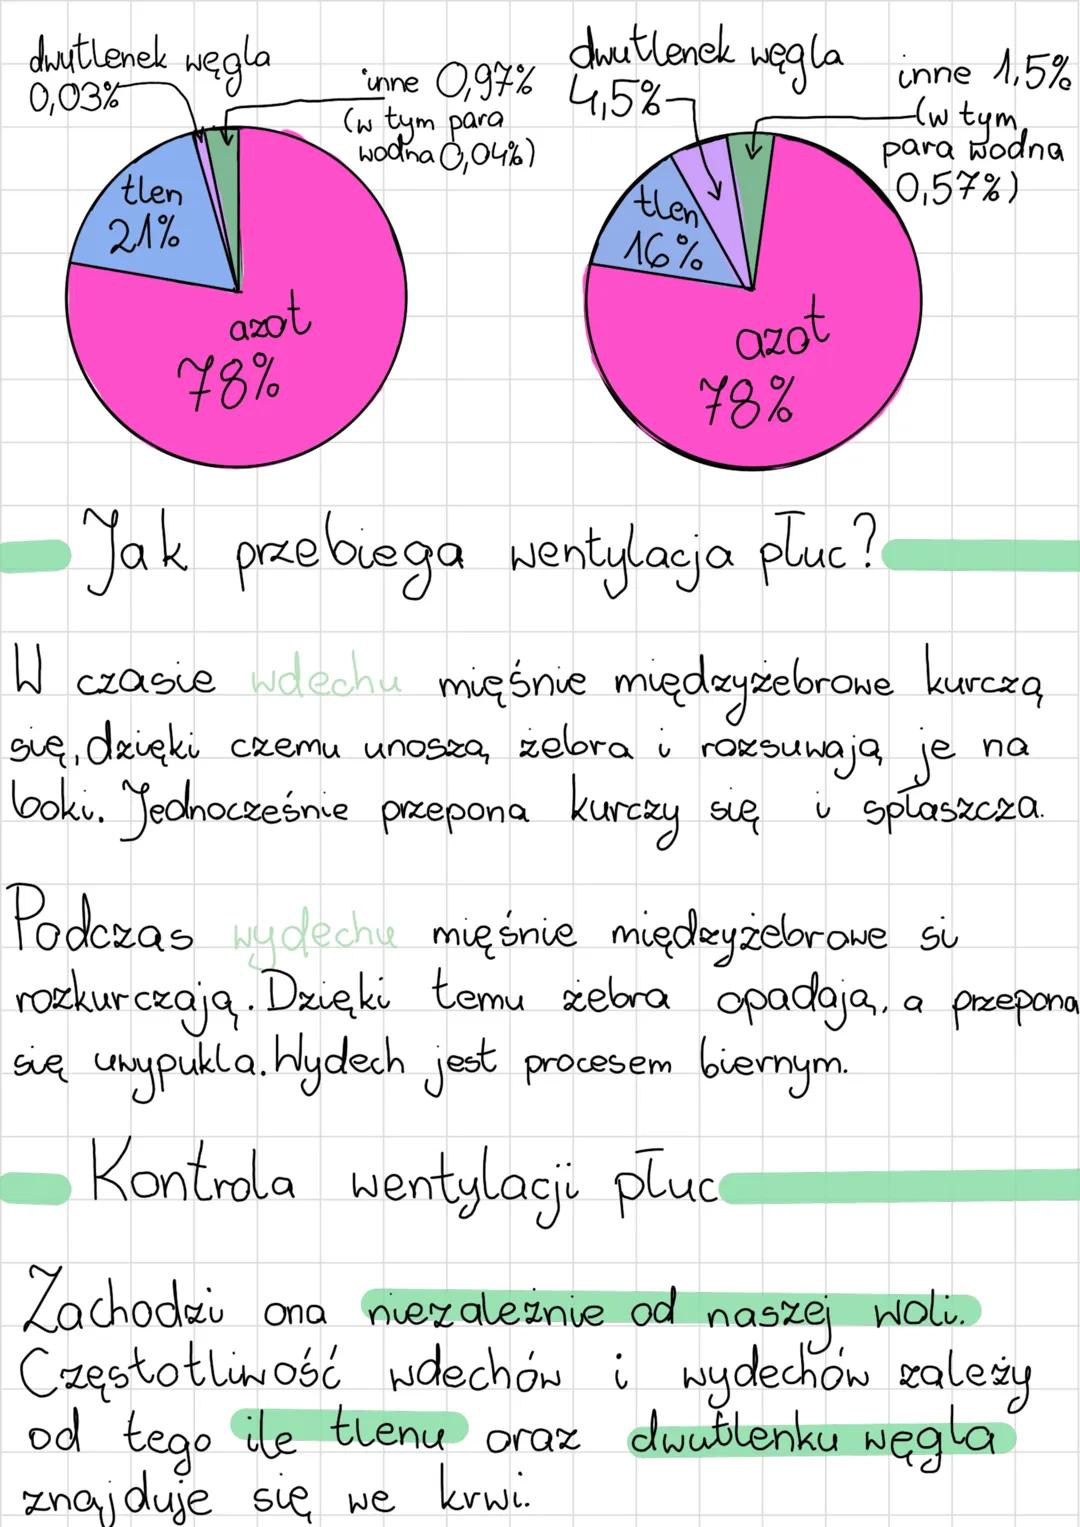 dwutlenek węgla
0,03%
inne 0,97%
(w tym para
wodna 0,04%)
tlen
21%
azot
78%
dwutlenek węgla
4,5%
inne 1,5%
(w tym
para wodna
0,57%)
tlen
16%
azot
78%
Jak przebiega wentylacja płuc?
W czasie wdechu mięśnie międzyżebrowe kurczą
się, dzięki czemu unoszą żebra i rozsuwają je na
boki. Jednocześnie przepona kurczy się i spłaszcza.
Podczas wydechu mięśnie międzyżebrowe si
rozkurczają. Dzięki temu żebra opadają, a przepona
się uwypukla. Wydech jest procesem biernym.
Kontrola wentylacji płuc
Zachodzi ona niezależnie od naszej woli.
Częstotliwość wdechów i wydechów zależy
od tego ile tlenu oraz dwutlenku węgla
znajduje się we krwi.